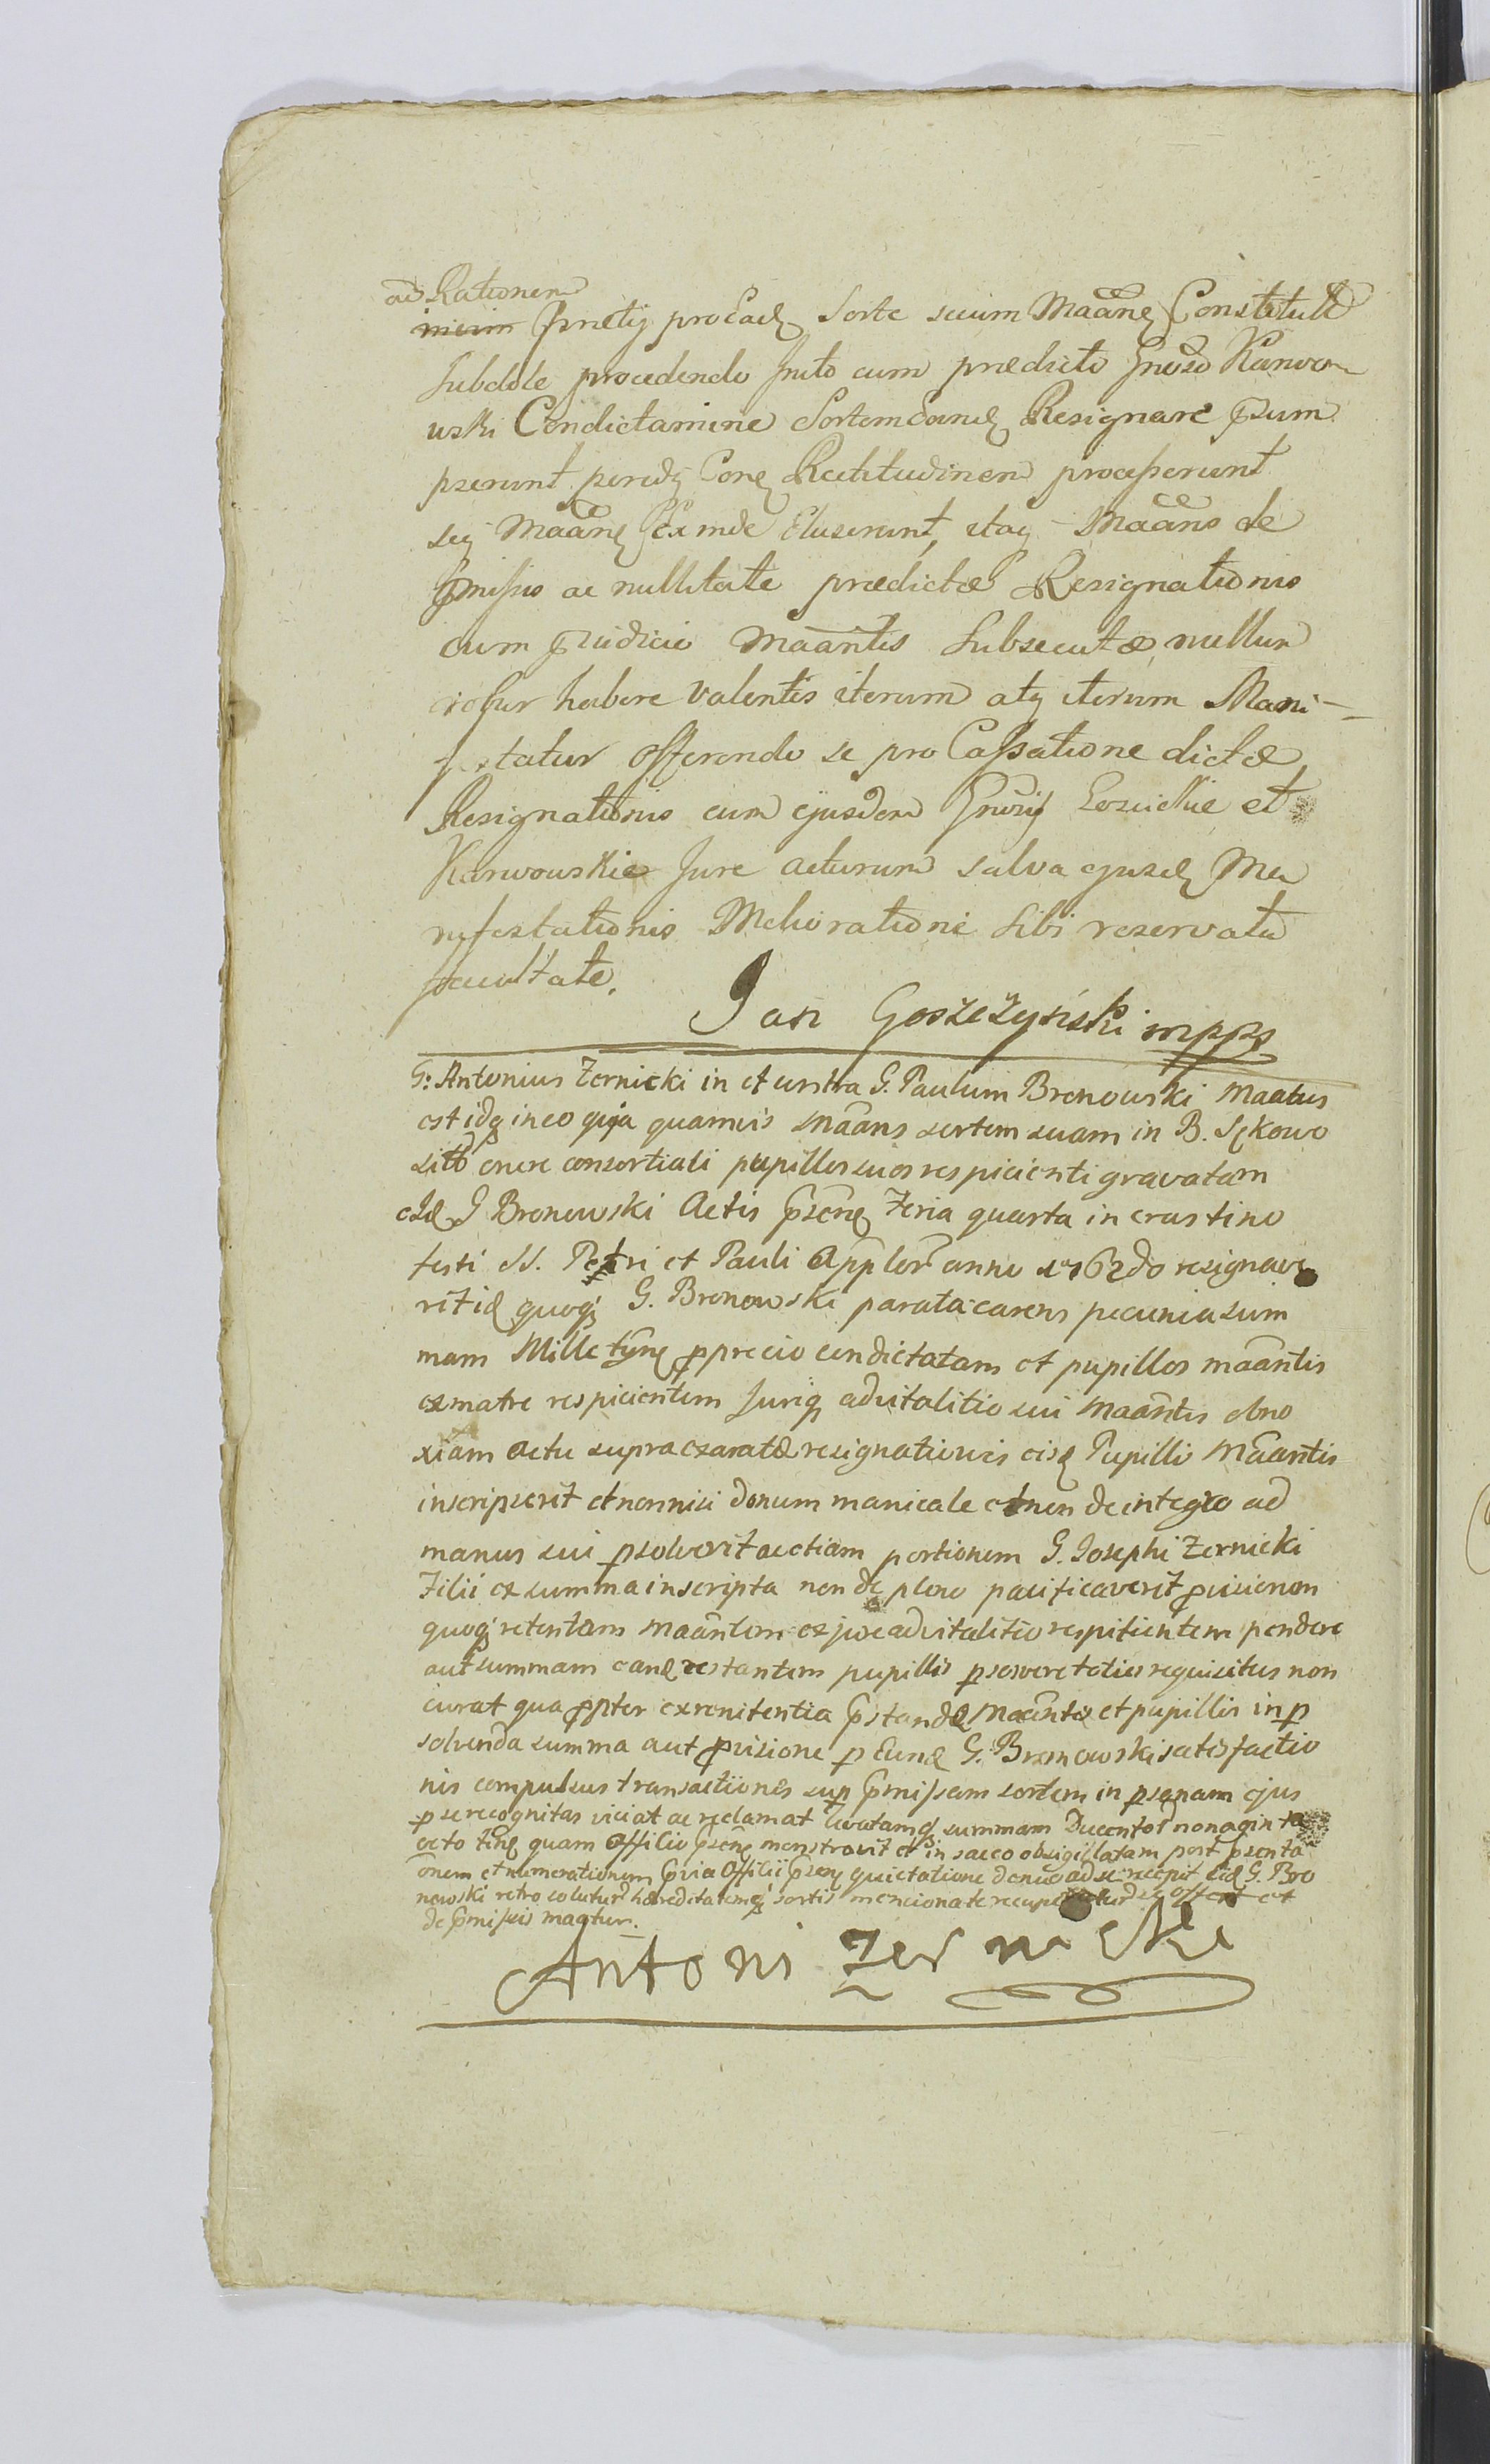 ad Rationem
pretij pro Eadq Sorte suum Maāne Constitutt
Subdole procedendo inito cum prædicto Gnoso Karwow
uski Condictamine Sortem Eandq Resignare Psum
pserunt Conq Rectitudinem processerunt
seq Maāne Exinde Eluserunt, itaq Maāns de
Pmissis ac nullitate prædictæ Resignationis
cum Pjudicio Maāntis Subsecutæ, nullum
robur habere Valentis iterum atq iterum Mani-
festatur offerendo se pro Cassatione dictæ
Resignationis cum ejusdem Gnosis et
Karwowskie Jure acturum salva ejusdq Ma
nifestationis Melioratione Sibi reservata
facultate.
Jan Goszczyński mpps
G: Antonius Zernicki in et contra G. Paulum Bronowski Maatus
est idq in eo quia quamvis Maāns sortem suam in B. Sękowo
sittō onere consortiali pupillos suos respicienti gravatam
eidq G Bronowski Actis Psenq Feria quarta in crastino
festi SS. Petri et Pauli Applor anno 1762do resignave
rit idq quoq G. Bronowski parata carens pecunia sum
mam Mille tynq P precio condictatam et pupillos maāntis
ex matre respicientem Juriq advitalitio sui Maāntis obno
xiam actu supra exaratæ resignationis eisq Pupillis Maāntis
inscripserit et nonnisi donum manicale et non de integro ad
manus sui psolverit ac etiam portionem G. Josephi Zernicki
Filii ex summa inscripta non de pleno pacificaverit Pvisionem
quoq retentam Maāntem ex jure advitalitio respitientem pendere
aut summam eandq restantem pupillis psolvere toties requisitus non
curat qua Ppter ex renitentia Pstandæ Maānti et pupillis in p
solvenda summa aut Pvisione p Eundq G. Bronowski satisfactio
nis compulsus transactiones sup Pmissam sortem in psonam ejus
p se recognitas viciat ac reclamat levatamq summam Ducentor nonaginta
octo tynq quam Officio Psenq monstravit et in sacco obsigillatam post Psenta
onem et numerationem Pvia Officii Psenq quietatione denuo ad se recepit Eidq G. Bro
nowski retro soluturū hæreditatemq sortis mencionate recuperaturū se offert et
de Pmissis maatur.
Antoni Zernicki